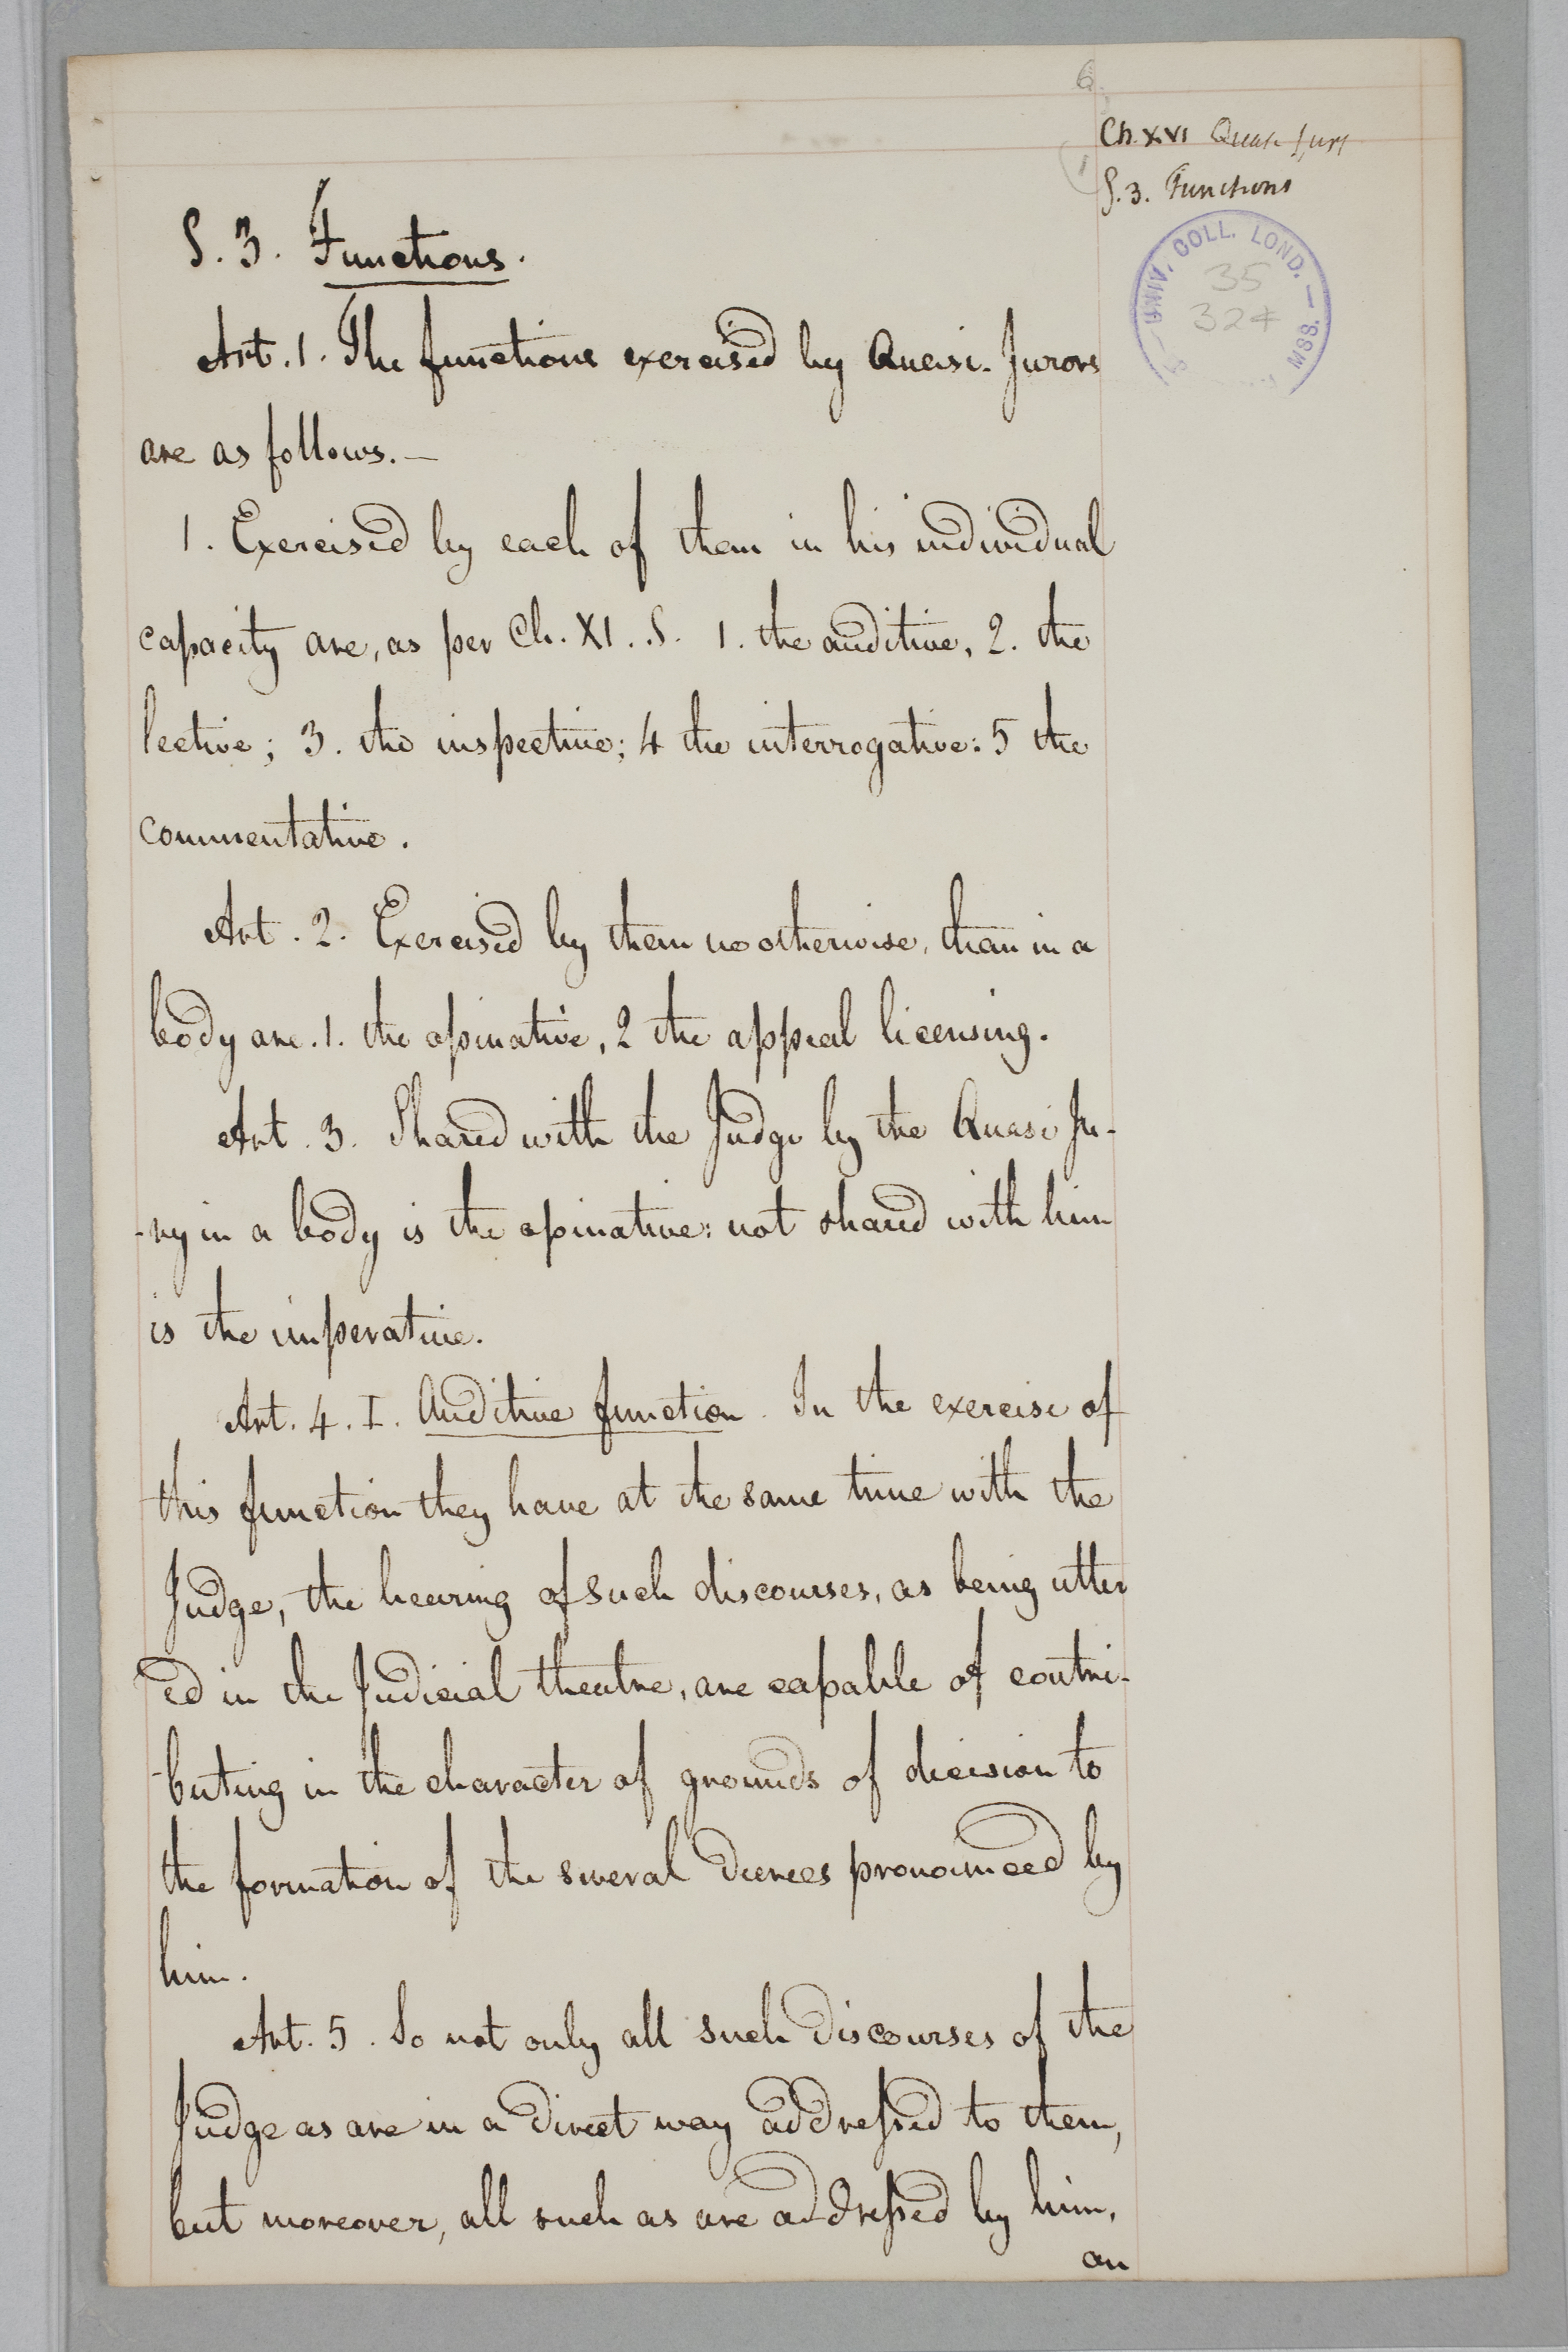 6
Ch. XVI Quasi Jury
(1
S. 3. Functions
UNIV. COLL. LOND. MSS.
35
324
S. 3. Functions.
Art. 1. The functions exercised by Quasi-Jurors
are as follows.—
1. Exercised by each of them in his individual
capacity are, as per Ch. XI. S. 1. the auditive, 2. the
lective; 3. the inspective; 4 the interrogative: 5 the
commentative.
Art. 2. Exercised by them no otherwise, than in a
body are. 1. the opinative, 2 the appeal licensing.
Art. 3. Shared with the Judge by the Quasi Ju-
-ry in a body is the opinative: not shared with him
is the imperative.
Art. 4. I. Auditive function. In the exercise of
this function they have at the same time with the
Judge, the hearing of such discourses, as being utter
ed in the Judicial theatre, are capable of contri-
-buting in the character of grounds of decision to
the formation of the several Decrees pronounced by
him.
Art. 5. So not only all such Discourses of the
Judge as are in a Direct way addressed to them,
but moreover, all such as are addressed by him,
an